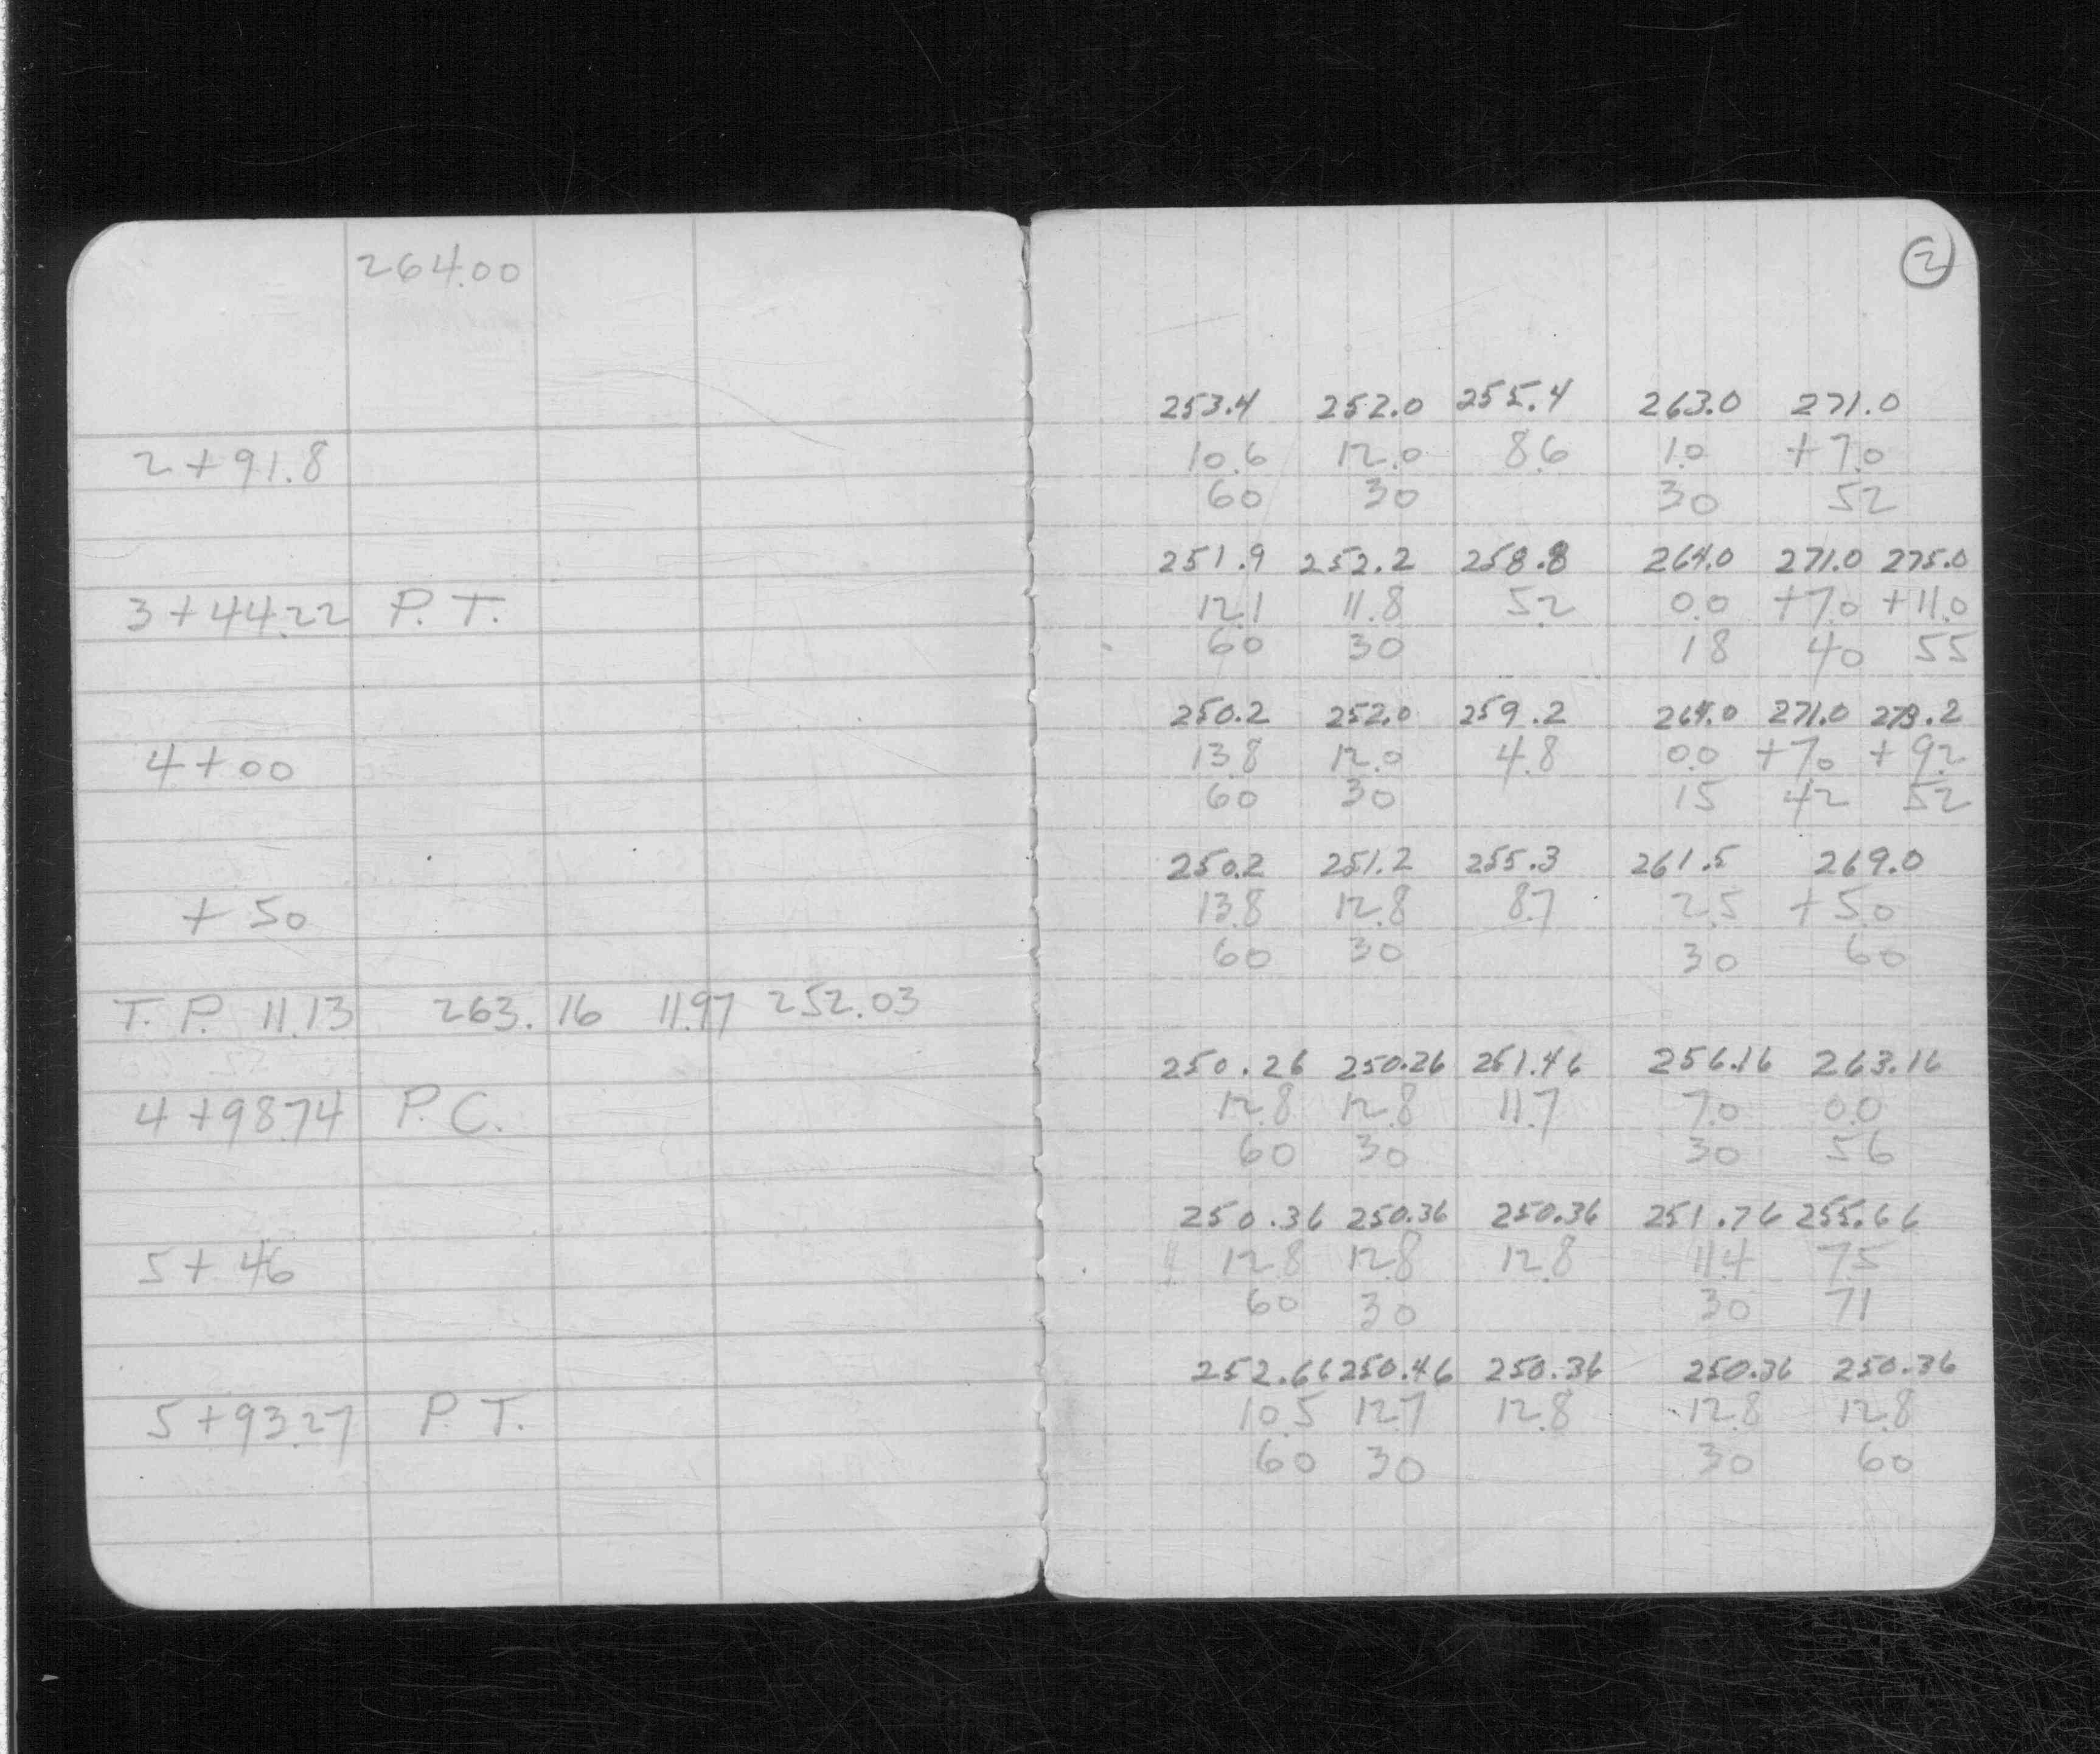 264.00
2
253.4 252.0 255.4 263.0 271.0
2+91.8 10.6 12.0 8.6 1.0 +7.0
60 30 30 52
251.9 252.2 258.8 264.0 271.0 275.0
3+44.22 P.T. 12.1 11.8 5.2 0.0 +7.0 +11.0
60 30 18 40 55
250.2 252.0 259.2 264.0 271.0 273.2
4+00 13.8 12.0 4.8 0.0 +7.0 +9.2
60 30 15 42 52
250.2 251.2 255.3 261.5 269.0
+50 13.8 12.8 8.7 2.5 +5.0
60 30 30 60
T.P. 11.13 263.16 11.97 252.03
250.26 250.26 251.46 256.16 263.16
4+98.74 P.C. 12.8 12.8 11.7 7.0 0.0
60 30 30 56
250.36 250.36 250.36 251.76 255.66
5+46 12.8 12.8 12.8 11.4 7.5
60 30 30 71
252.66 250.46 250.36 250.36 250.36
5+93.27 P.T. 10.5 12.7 12.8 12.8 12.8
60 30 30 60